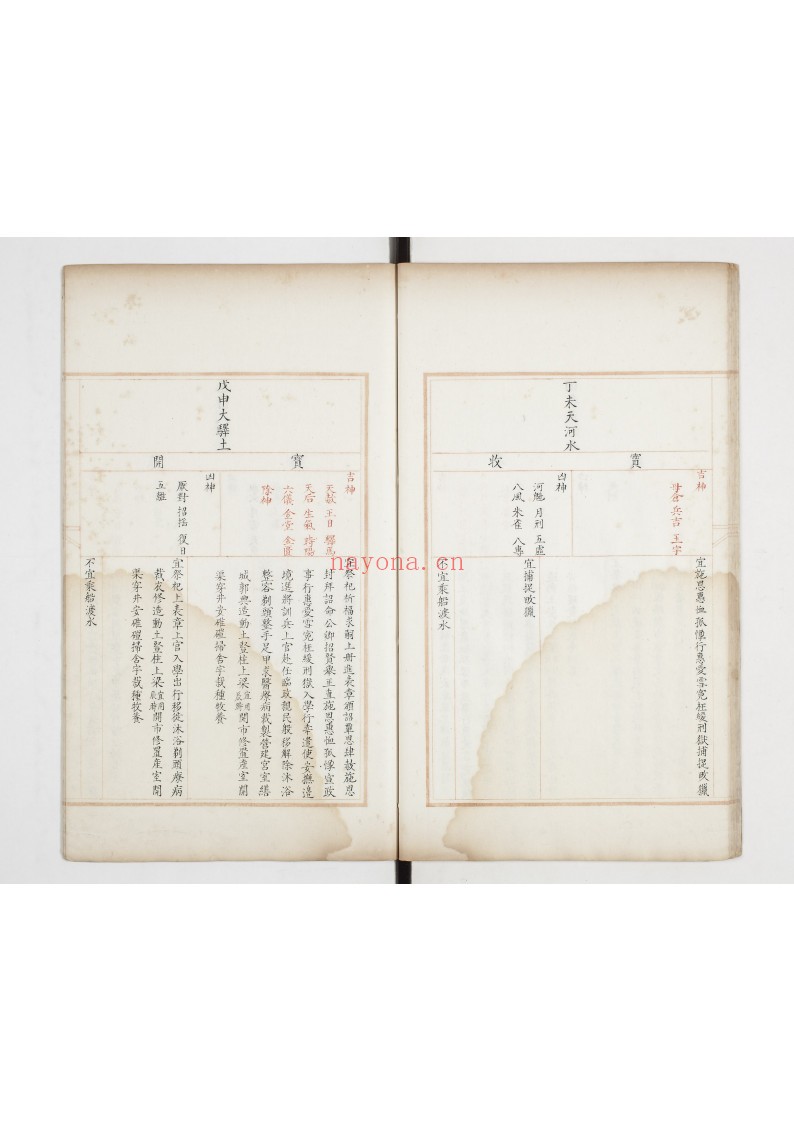 丁未天河水
寶 收
吉神
母倉 兵吉 玉宇
凶神
河魁 月刑 五虛
八風 朱雀 八專
宜施恩惠恤孤惸行惠愛雪寃枉緩刑獄捕捉畋獵
宜捕捉畋獵
不宜乘船渡水
戊申大驛土
寶 開
吉神
天赦 王日 驛馬
天后 生氣 時陽
六儀 金堂 金匱
除神
凶神
厭對 招搖 復日
五離
宜祭祀祈福求嗣上册進表章頒詔覃恩肆赦施恩
封拜詔命公卿招賢舉正直施恩惠恤孤惸宣政
事行惠愛雪寃枉緩刑獄入學行幸遣使安撫邊
境選將訓兵上官赴任臨政親民般移解除沐浴
整容剃頭整手足甲求醫療病裁製營建宮室繕
城郭興造動土豎柱上梁宜用辰時開市修置産室開
渠穿井安碓磑掃舍宇栽種牧養
宜祭祀上表章上官入學出行移徙沐浴剃頭療病
裁衣修造動土豎柱上梁宜用辰時開市修置産室開
渠穿井安碓磑掃舍宇栽種牧養
不宜乘船渡水
nayona.cn